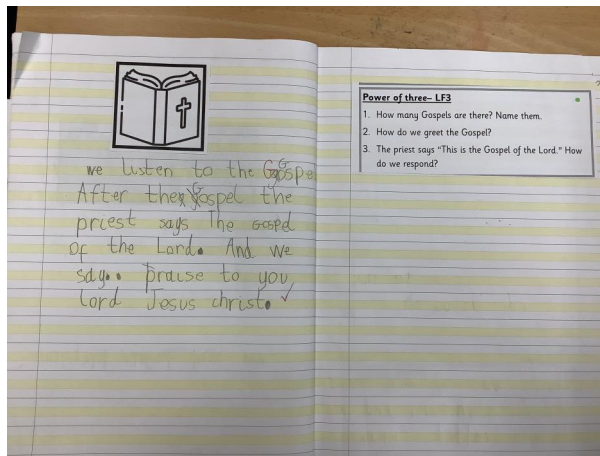 we listen to the Gospel
After the Gospel the
priest says The Gospel
of the Lord. And we
say.. praise to you
lord Jesus christ.
Power of three– LF3
1. How many Gospels are there? Name them.
2. How do we greet the Gospel?
3. The priest says "This is the Gospel of the Lord." How
do we respond?